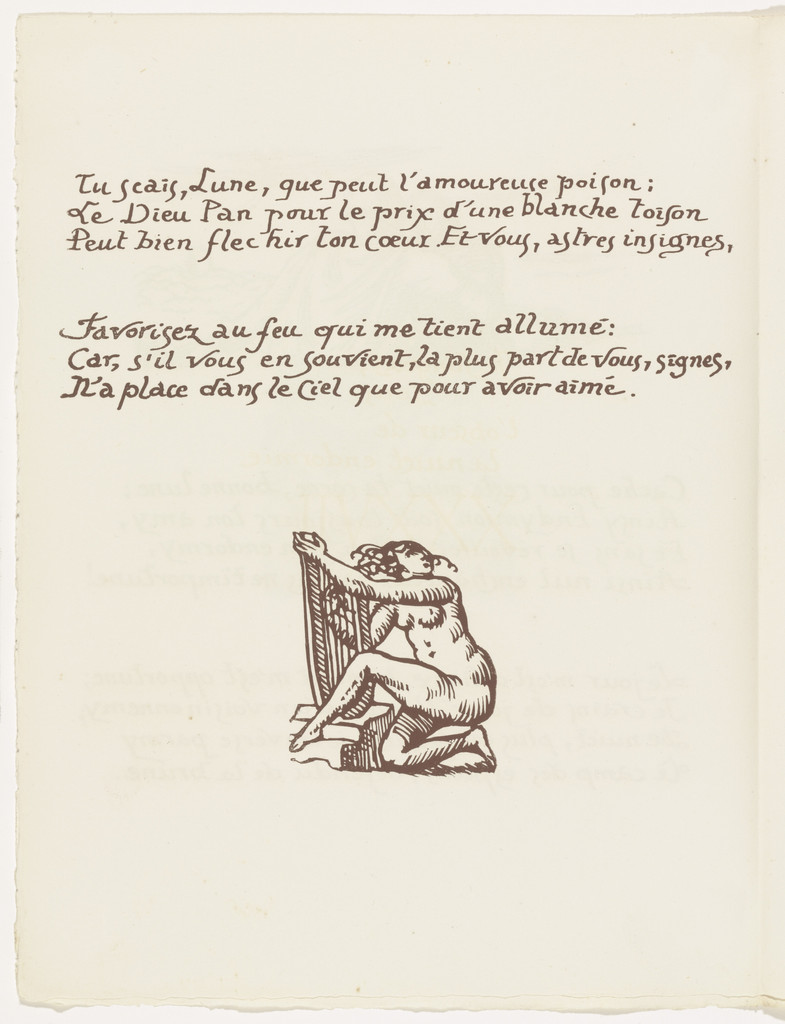 Tu scais, Lune, que peut l'amoureuse poison;
Le Dieu Pan pour le prix d'une blanche toison
Peut bien flechir ton cœur. Et vous, astres insignes,
Favorisez au feu qui me tient allumé:
Car, s'il vous en souvient, la plus part de vous, signes,
N'a place dans le Ciel que pour avoir aimé.